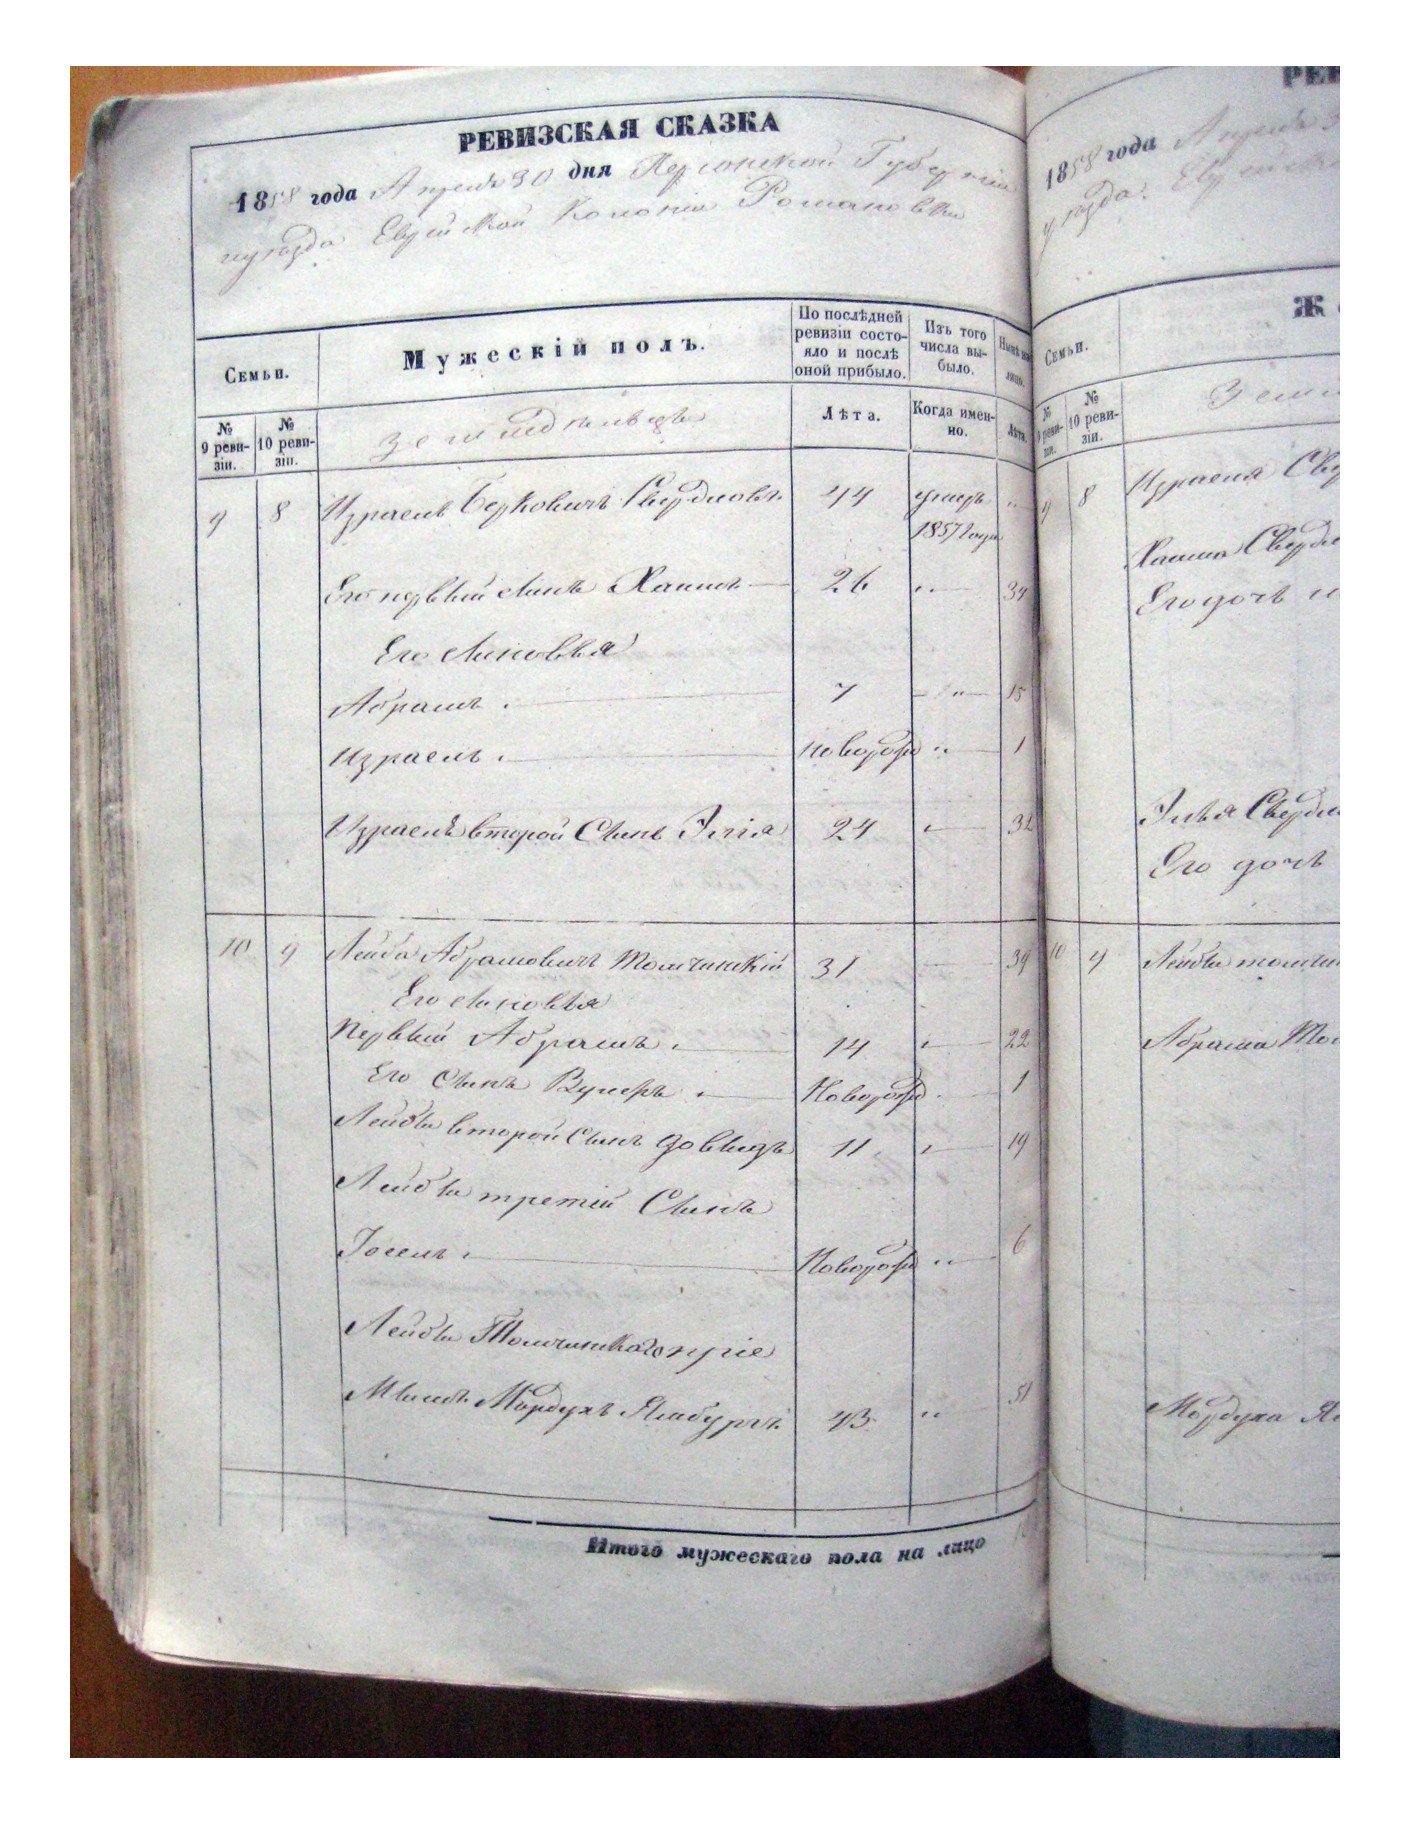 РЕВИЗСКАЯ СКАЗКА
1858 года Апреля 30 дня Херсонской Губерніи
уѣзда Еврейской Колоніи Романовки
Семьи.
Мужескій полъ.
По послѣдней ревизіи состо-
яло и послѣ
оной прибыло.
Изъ того
числа вы-
было.
Нынѣ на
лицо.
№
9 реви-
зіи.
№
10 реви-
зіи.
Лѣта.
Когда имен-
но.
Лѣта.
9 8 Израель Берковичъ Свердловъ 44 умеръ
1857 года
Его первый сынъ Хаимъ 26 " 34
Его сыновья
Абрамъ 7 " 15
Израель новорож " 1
Израеля второй Сынъ Илія 24 " 32
10 9 Лейба Абрамовичъ Толчинскій 31 39
Его сыновья
Первый Абрамъ 14 " 22
Его Сынъ Новорож 1
Лейбы второй Сынъ Довидъ 11 " 19
Лейбы третій Сынъ
Іосель Новорож " 6
Лейбы Толчинскаго пріе
мышъ Мордухъ Ямбургъ 43 " 51
Итого мужескаго пола на лицо
РЕВ
1858 года Апреля 3
уѣзда
Семьи.
Ж
№
9 реви-
зіи.
№
10 реви-
зіи.
9 8 Израеля Све
Хаима Сверд
Его дочь
Илья Свердл
Его дочь
10 9 Лейбы толчин
Абрама Тол
Мордуха Я